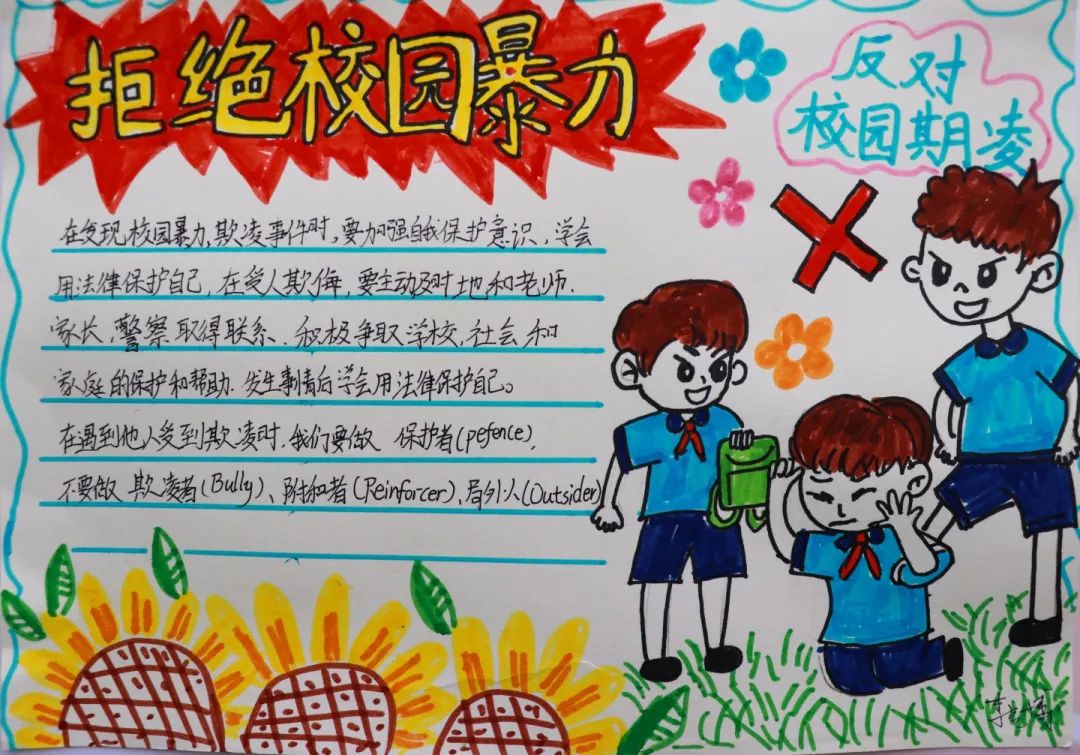 拒绝校园暴力
反对
校园期凌
在发现校园暴力,欺凌事件时,要加强自我保护意识,学会
用法律保护自己,在受人欺侮,要主动及时地和老师.
家长,警察取得联系.积极争取学校,社会和
家庭的保护和帮助.发生事情后学会用法律保护自己。
在遇到他人受到欺凌时.我们要做 保护者(pefence),
不要做 欺凌者(Bully)、附和者(Reinforcer)、局外人(Outsider)